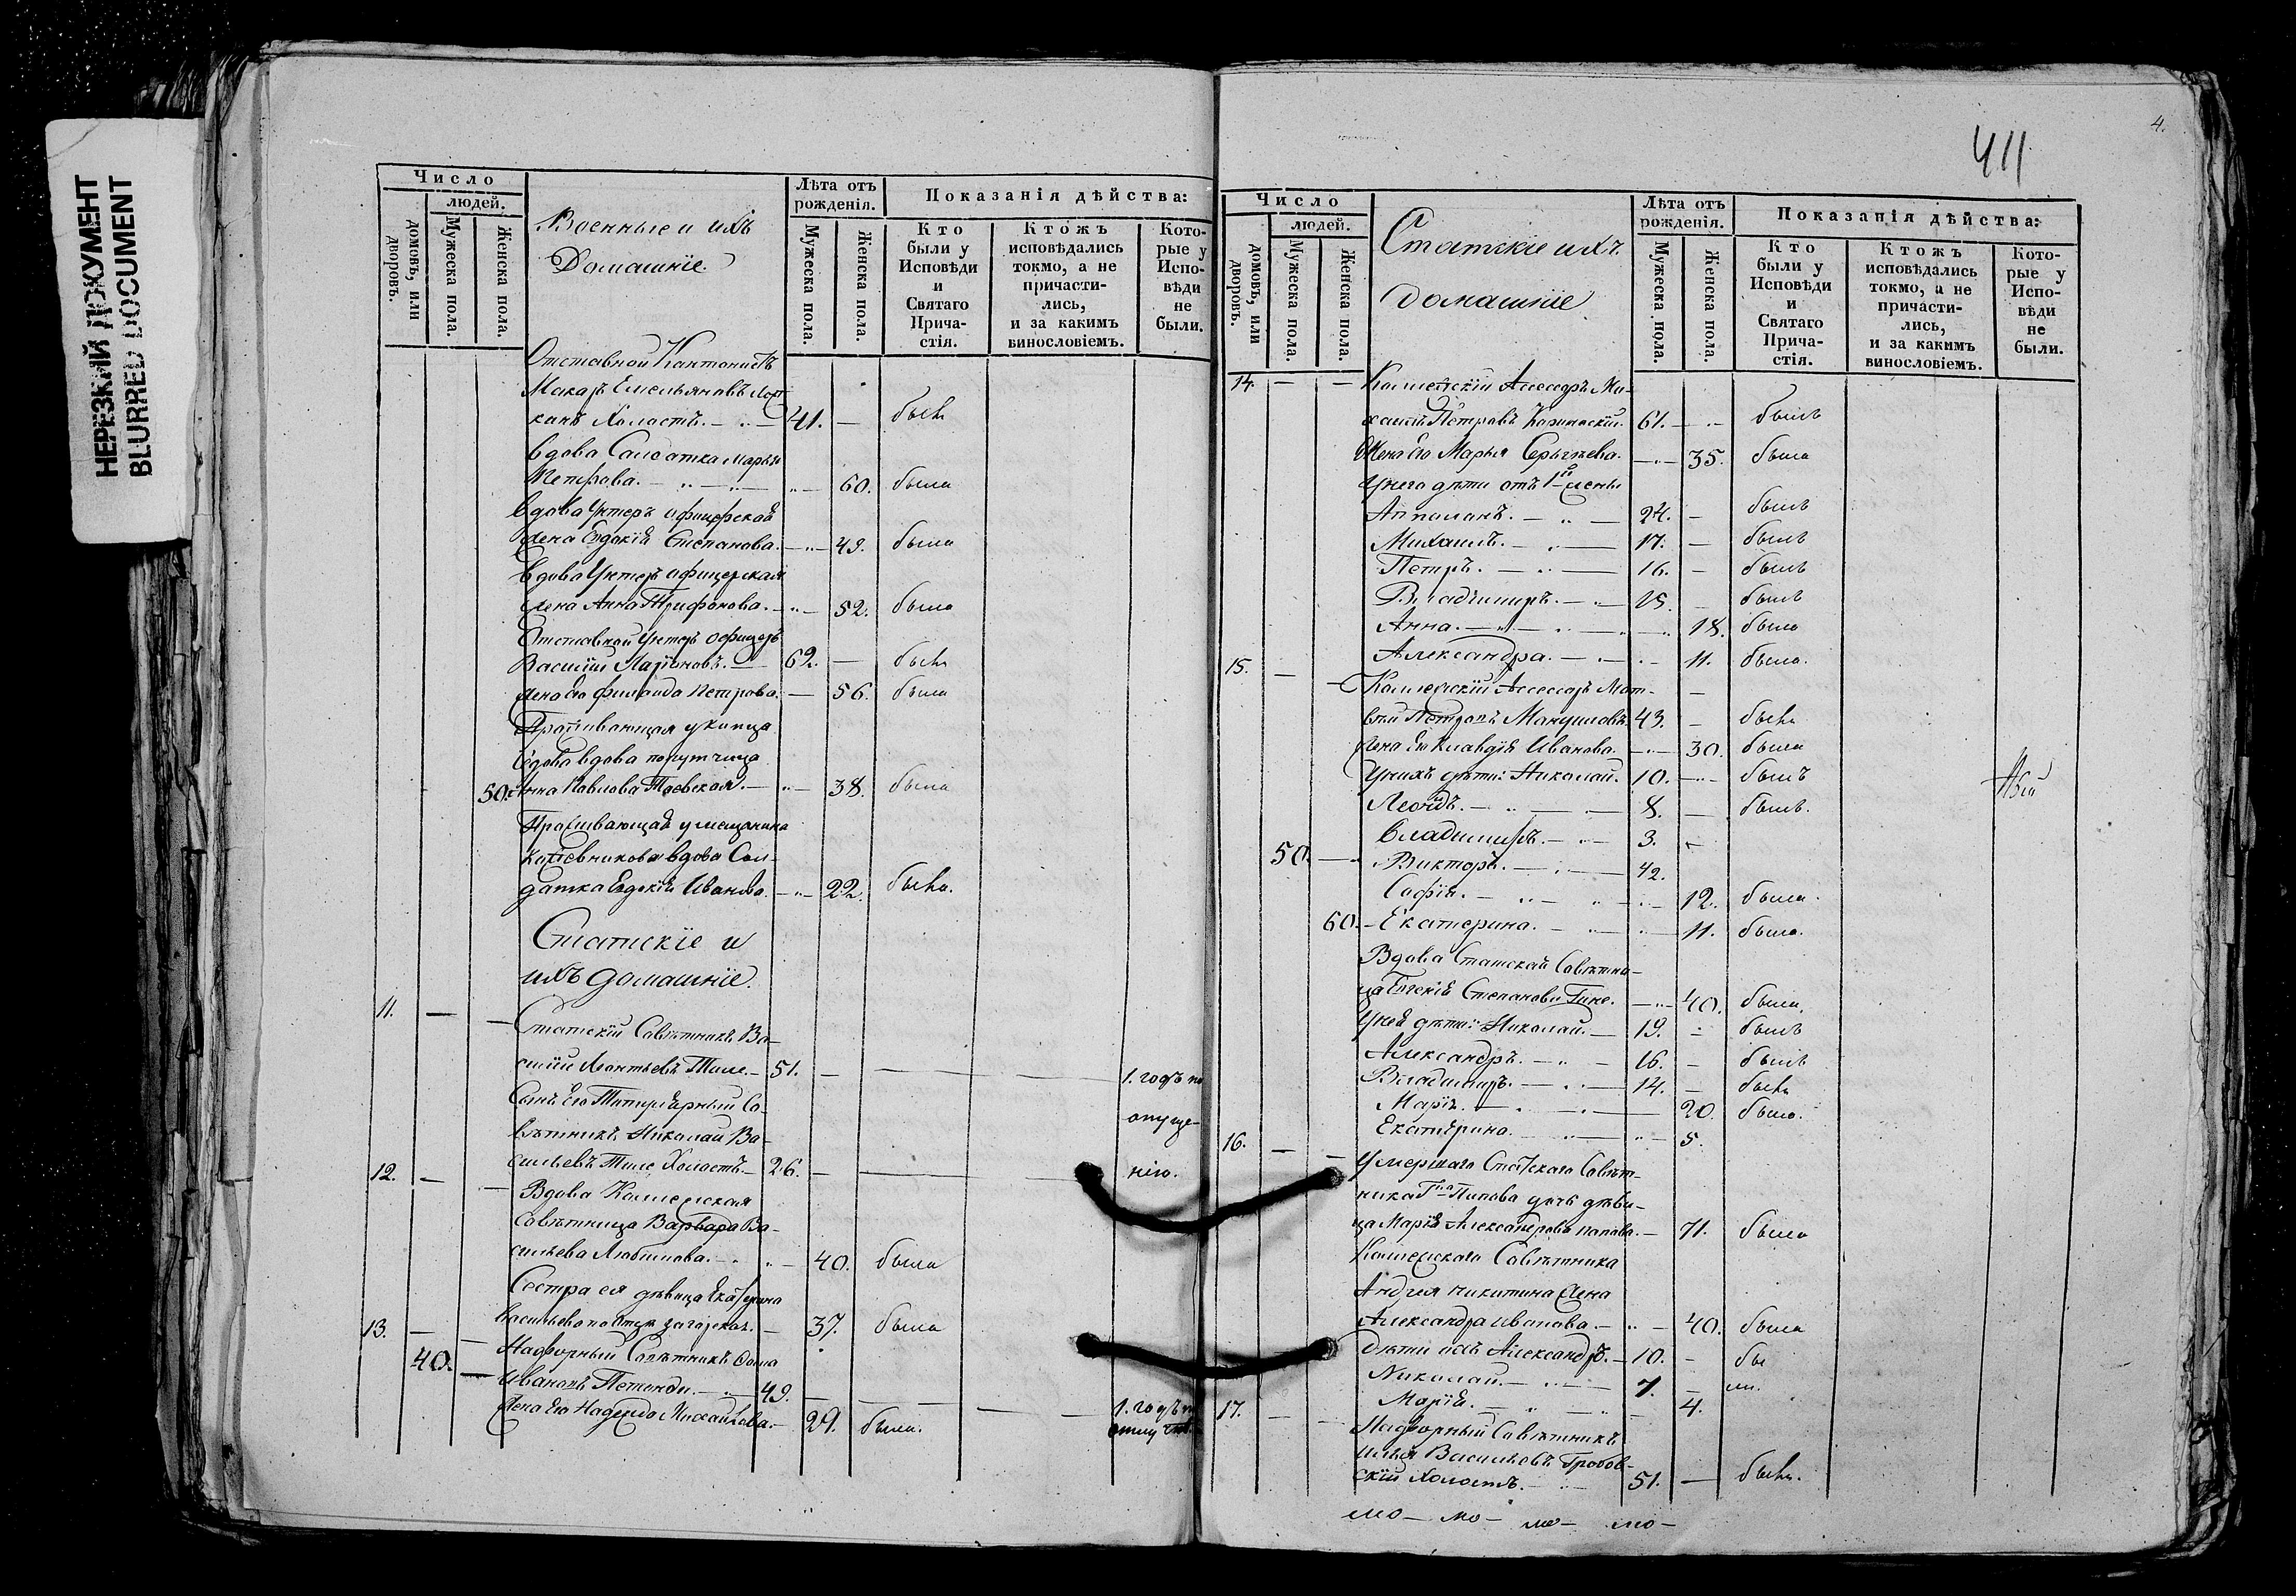 НЕРЕЗКИЙ ДОКУМЕНТ
BLURRED DOCUMENT
Число
людей.
домовъ, или дворовъ.
Мужеска пола.
Женска пола.
Военные и ихъ
Домашніе.
Лѣта отъ рожденія.
Мужеска пола.
Женска пола.
Показанія дѣйства:
Кто были у Исповѣди и Святаго Причастія.
Ктожъ исповѣдались токмо, а не причастились, и за какимъ винословіемъ.
Которые у Исповѣди не были.
Отставной Кантонистъ
Макаръ Емельяновъ
Холостъ. 41. былъ
Вдова Солдатка Марья
Петрова. 60. была
Вдова Унтеръ офицерская
жена Евдокія Степанова. 49. была
Вдова Унтеръ офицерская
жена Анна Трифонова. 52. была
Отставной Унтеръ офицеръ
Василій Ларіоновъ. 62. былъ
жена его Петрова. 56. была
Проживающая у купца
Седова вдова
50. Анна Павлова 38. была
Проживающая у мещанина
вдова Сол-
датка Евдокія Иванова. 22. была.
Статскіе и
ихъ домашніе.
11. Статскій Совѣтникъ Ва-
силій Леонтьевъ Тиле. 51. 1. годъ по
Сынъ его Титулярный Со- опуще-
вѣтникъ Николай Ва-
12. сильевъ Тиле Холостъ. 26. нію.
Вдова Коллежская
Совѣтница Варвара Ва-
сильева Любимова. 40. была
Сестра ея дѣвица Екатерина
13. Васильева 37. была
40. Надворный Совѣтникъ
49. 1. годъ
жена его Надежда Михайлова. 29. была.
4.
411
Число
людей.
домовъ, или дворовъ.
Мужеска пола.
Женска пола.
Статскіе ихъ
домашніе.
Лѣта отъ рожденія.
Мужеска пола.
Женска пола.
Показанія дѣйства:
Кто были у Исповѣди и Святаго Причастія.
Ктожъ исповѣдались токмо, а не причастились, и за какимъ винословіемъ.
Которые у Исповѣди не были.
14. Коллежскій Асессоръ Ми-
хаилъ Петровъ 61. былъ
Жена его Марья Сергѣева. 35. была
У него дѣти отъ 1й жены
Апполонъ. 24. былъ
Михаилъ. 17. былъ
Петръ. 16. былъ
Владимиръ. 15. былъ
Анна. 18. была
Александра. 11. была.
15. Коллежскій Асессоръ Мат-
вѣй Петровъ Мануиловъ. 43. былъ
жена его Клавдія Иванова. 30. была
У нихъ дѣти: Николай. 10. былъ
Леонидъ. 8. былъ.
Владимиръ. 3.
50. Викторъ.
Софія. 12. была.
60. Екатерина. 11. была.
Вдова Статская Совѣтни-
ца Степанова 40. была.
У нея дѣти: Николай. 19. былъ
Александръ. 16. былъ
Владимиръ. 14. былъ
Марія. 20. была.
Екатерина. 5.
16. Умершаго Статскаго Совѣт-
ника Попова дочь дѣви-
ца Марія Александрова Попова. 71. была
Коллежскаго Совѣтника
Андрея Никитина жена
Александра Иванова. 40. была
Дѣти ихъ Александръ. 10. бы
Николай. 7. ли.
17. Марія. 4.
Надворный Совѣтникъ
Илья Васильевъ Гробов-
скій Холостъ. 51. былъ.